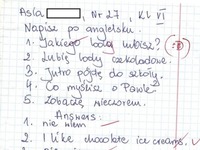 Asia , Nr 27, Kl. VI
Napisz po angielsku.
1. Jakiego lody lubisz?
2. Lubię lody czekoladowe.
3. Jutro pójdę do szkoły.
4. Co myślisz o Pawle
5. Zobaczę wieczorem.
Answers:
1. nie wiem
2. I like chocolate ice creams.